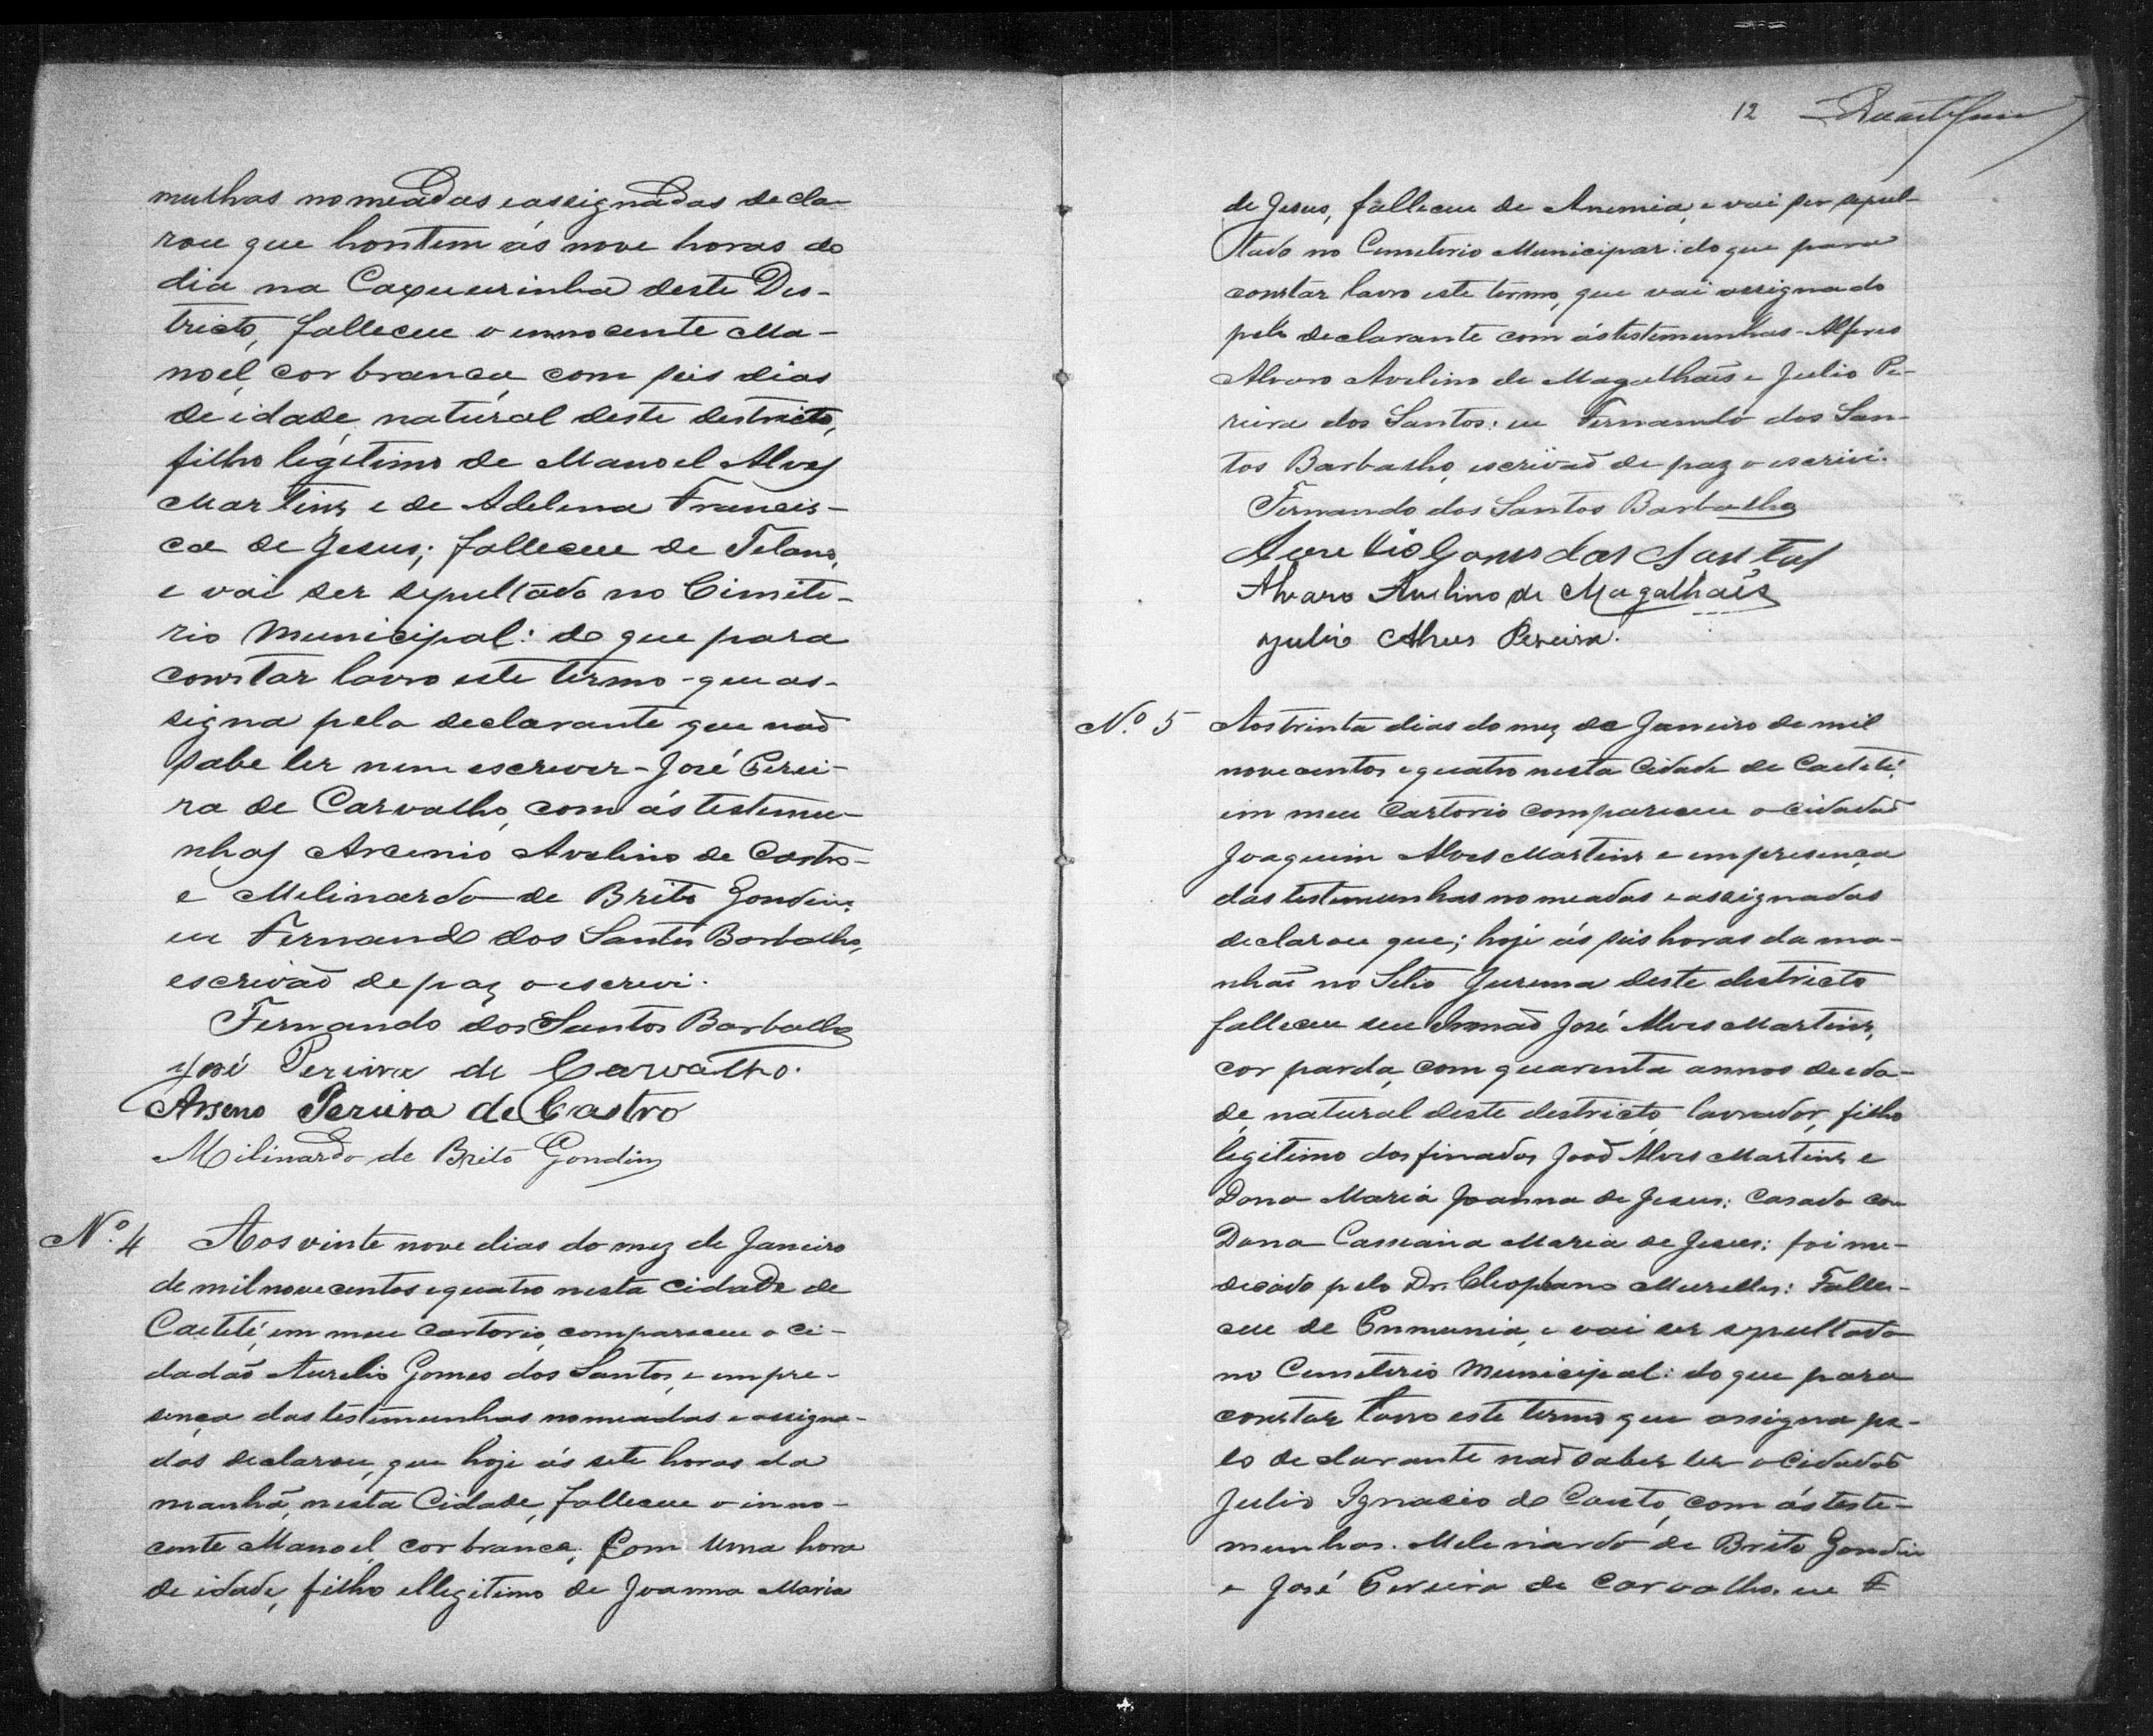 munhas nomeadas e assignadas decla-
rou que hontem ás nove horas do
dia na Caxueirinha deste Des-
tricto, falleceu o innocente Ma-
noel, cor branca, com seis dias
de idade, natural deste destricto,
filho legitimo de Manoel Alves
Martins e de Adelina Francis-
ca de Jesus; falleceu de Tetano,
e vai ser sepultado no Cimite-
rio Municipal: do que para
constar lavro este termo que as-
signa pelo declarante que naõ
sabe ler nem escrever - José Perei-
ra de Carvalho, com ás testemu-
nhas Arcenio Avelino de Castro
e Melinardo de Brito Gondin:
eu Fernando dos Santos Barbalho,
escrivaõ de paz o escrevi.
Fernando dos Santos Barbalho
José Pereira de Carvalho.
Arseno Pereira de Castro
Milinardo de Brito Gondin
Nº 4 Aos vinte nove dias do mez de Janeiro
de mil nove centos e quatro nesta cidade de
Caeteté, em meu cartorio, compareceu o ci-
dadaõ Aurelio Gomes dos Santos, e em pre-
sença das testemunhas nomeadas e assigna-
das declarou, que hoje ás sete horas da
manhã, nesta Cidade, falleceu o inno-
cente Manoel, cor branca, com uma hora
de idade, filho illegitimo de Joanna Maria
12
de Jesus, falleceu de Anemia, e vai ser sepul-
tado no Cemeterio Municipar: do que para
constar lavro este termo, que vai assignado
pelo declarante com ás testemunhas - Alferes
Alvaro Avelino de Magalhaẽs e Julio Pe-
reira dos Santos: eu Fernando dos San-
tos Barbalho, escrivaõ de paz o escrivi.
Fernando dos Santos Barbalho
Aurelio Gomes dos Santos
Alvaro Avelino de Magalhaẽs
Julio Alves Pereira.
Nº 5 Aos trinta dias do mez de Janeiro de mil
nove centos e quatro nesta Cidade de Caeteté,
em meu Cartorio compareceu o cidadaõ
Joaquim Alves Martins e em presença
das testemunhas nomeadas e assignadas
declarou que; hoje ás seis horas da ma-
nhaã no Sitio Jurema deste destricto
falleceu seu Irmaõ José Alves Martins,
cor parda, com quarenta annos de eda-
de, natural deste destricto, lavrador, filho
legitimo dos finados Joaõ Alves Martins e
Dona Maria Joanna de Jesus: casado com
Dona Cassiana Maria de Jesus: foi me-
dicado pelo Dr. Cleophano Meirelles: Falle-
ceu de Enmunia, e vai ser sepultado
no Cemeterio Municipal: do que para
constar lavro este termo que assigna pe-
lo declarante naõ saber ler o cidadaõ
Julio Ignacio do Couto, com ás teste-
munhas. Melinardo de Brito Gondin
e José Pereira de Carvalho. eu F